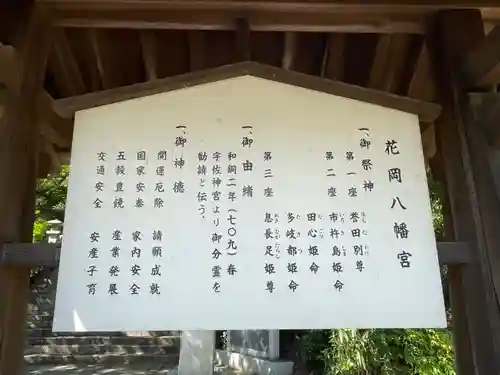 花岡八幡宮
一、御祭神
第一座 誉田別尊
ほんだわけ
第二座 市杵島姫命
いちきしま
田心姫命
たごり
多岐都姫命
たきつ
第三座 息長足姫尊
おきながたらし
一、御由緒
和銅二年(七〇九)春
宇佐神宮より御分霊を
勧請と伝う。
一、御神徳
開運厄除 請願成就
国家安泰 家内安全
五穀豊饒 産業発展
交通安全 安産子育